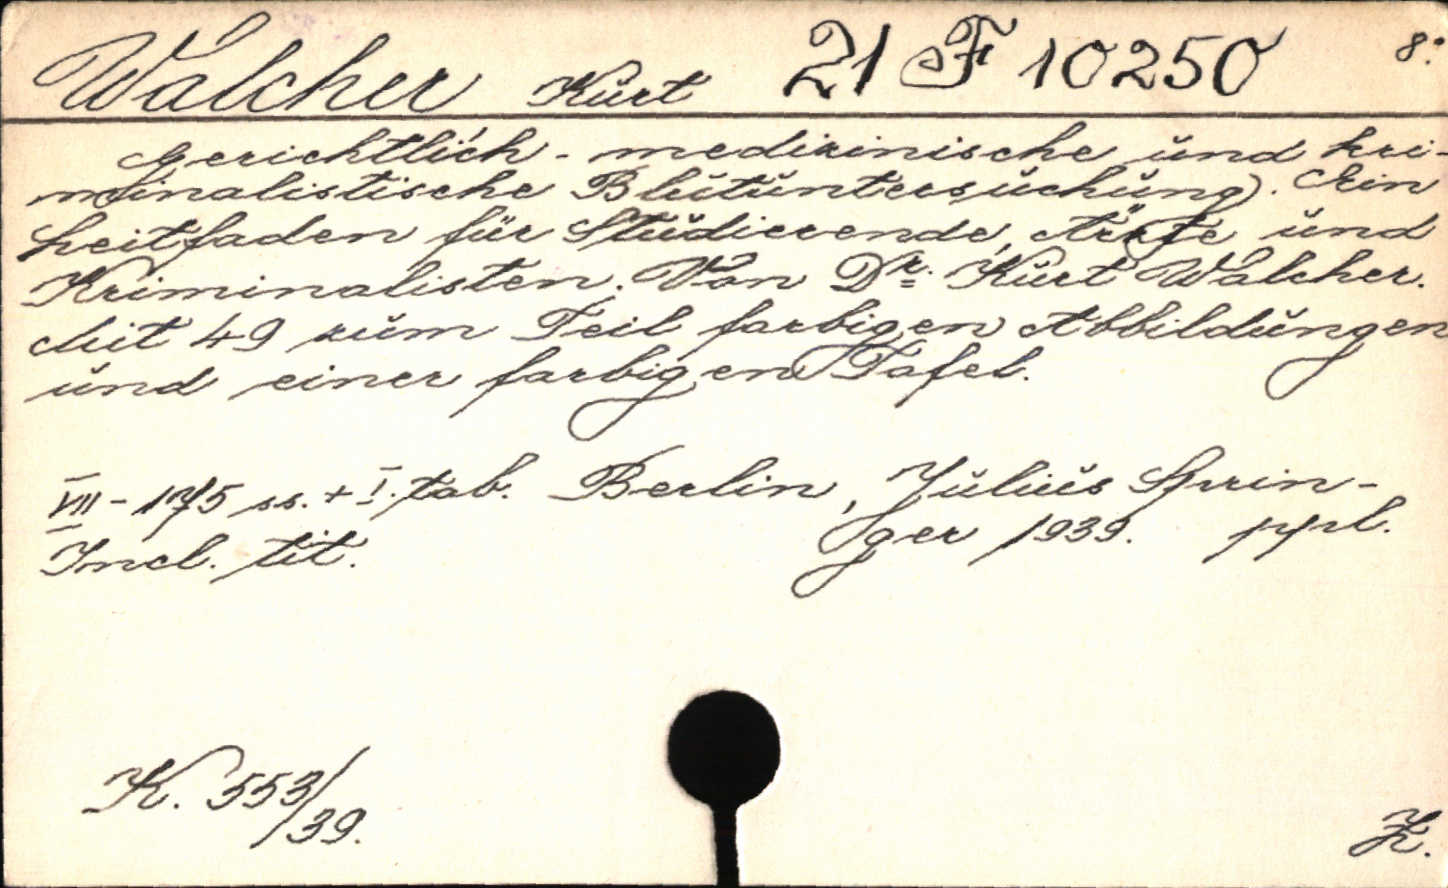 Walcher Kurt 21 F 10250 8°.
Gerichtlich - medizinische und kri-
minalistische Blutuntersuchung. Ein
Leitfaden für Studierende, Ärzte und
Kriminalisten. Von Dr. Kurt Walcher.
Mit 49 zum Teil farbigen Abbildungen
und einer farbigen Tafel.
VII - 175 ss. + I. tab. Berlin, Julius Sprin-
ger 1939.
Incl. tit.
K. 553/39.